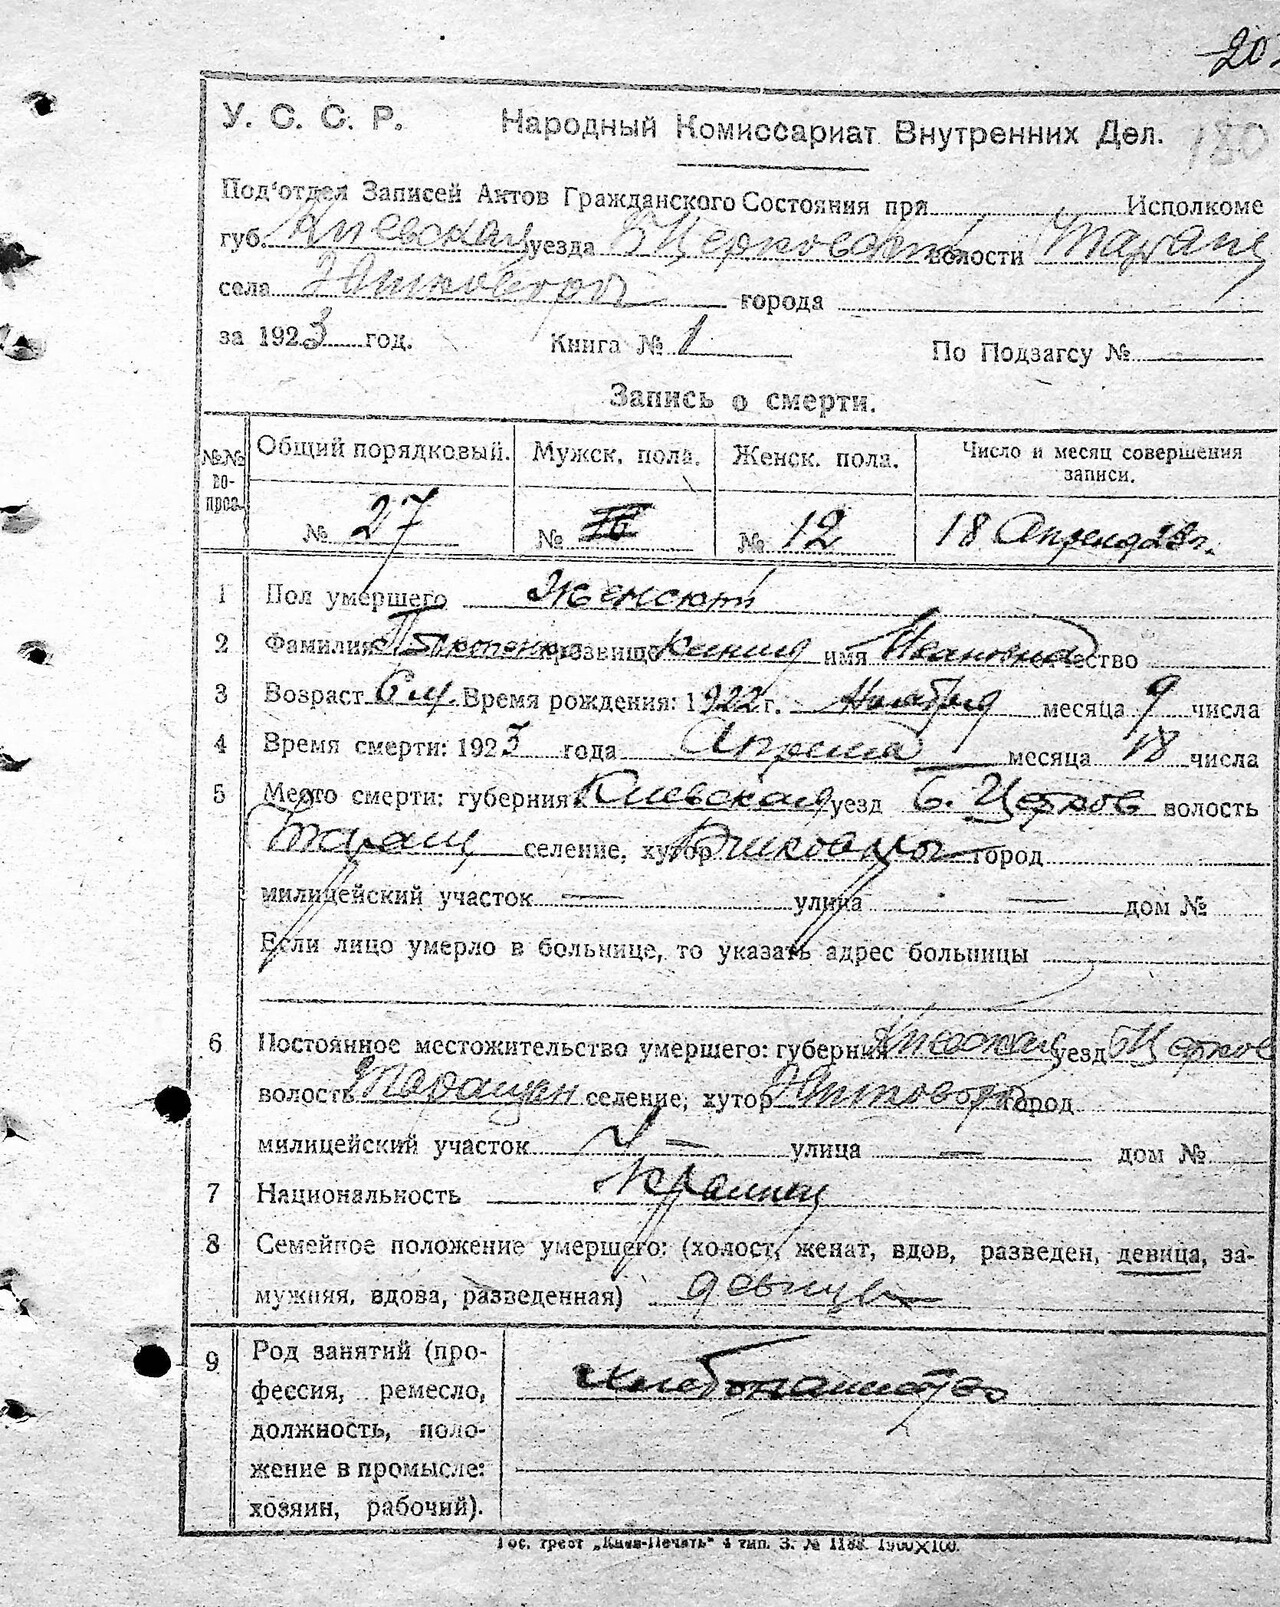 20
У. С. С. Р. Народный Комиссариат Внутренних Дел. 180
Под'отдел Записей Актов Гражданского Состояния при Исполкоме
губ. Киевская уезда БЦерковский волости Таращ
села города
за 1923 год. Книга № 1 По Подзагсу №
Запись о смерти.
№№ во-проса Общий порядковый. Мужск. пола. Женск. пола. Число и месяц совершения записи.
№ 27 № № 12 18 Апреля 23 г.
1 Пол умершего Женский
2 Фамилия прозвище имя Ивановна отчество
3 Возраст 6 м. Время рождения: 1922 г. Ноября месяца 9 числа
4 Время смерти: 1923 года Апреля месяца 18 числа
5 Место смерти: губерния Киевская уезд Б. Церков волость
Таращ селение, хутор город
милицейский участок — улица — дом №
Если лицо умерло в больнице, то указать адрес больницы
6 Постоянное местожительство умершего: губерния Киевская уезд БЦерков
волость Таращан селение, хутор город
милицейский участок — улица — дом №
7 Национальность Украинец
8 Семейное положение умершего: (холост, женат, вдов, разведен, девица, за-
мужняя, вдова, разведенная) девица
9 Род занятий (про-
фессия, ремесло,
должность, поло-
жение в промысле:
хозяин, рабочий).
хлебопашество
Гос. трест „Киев-Печать" 4 тип. З. № 1188. 1900×100.